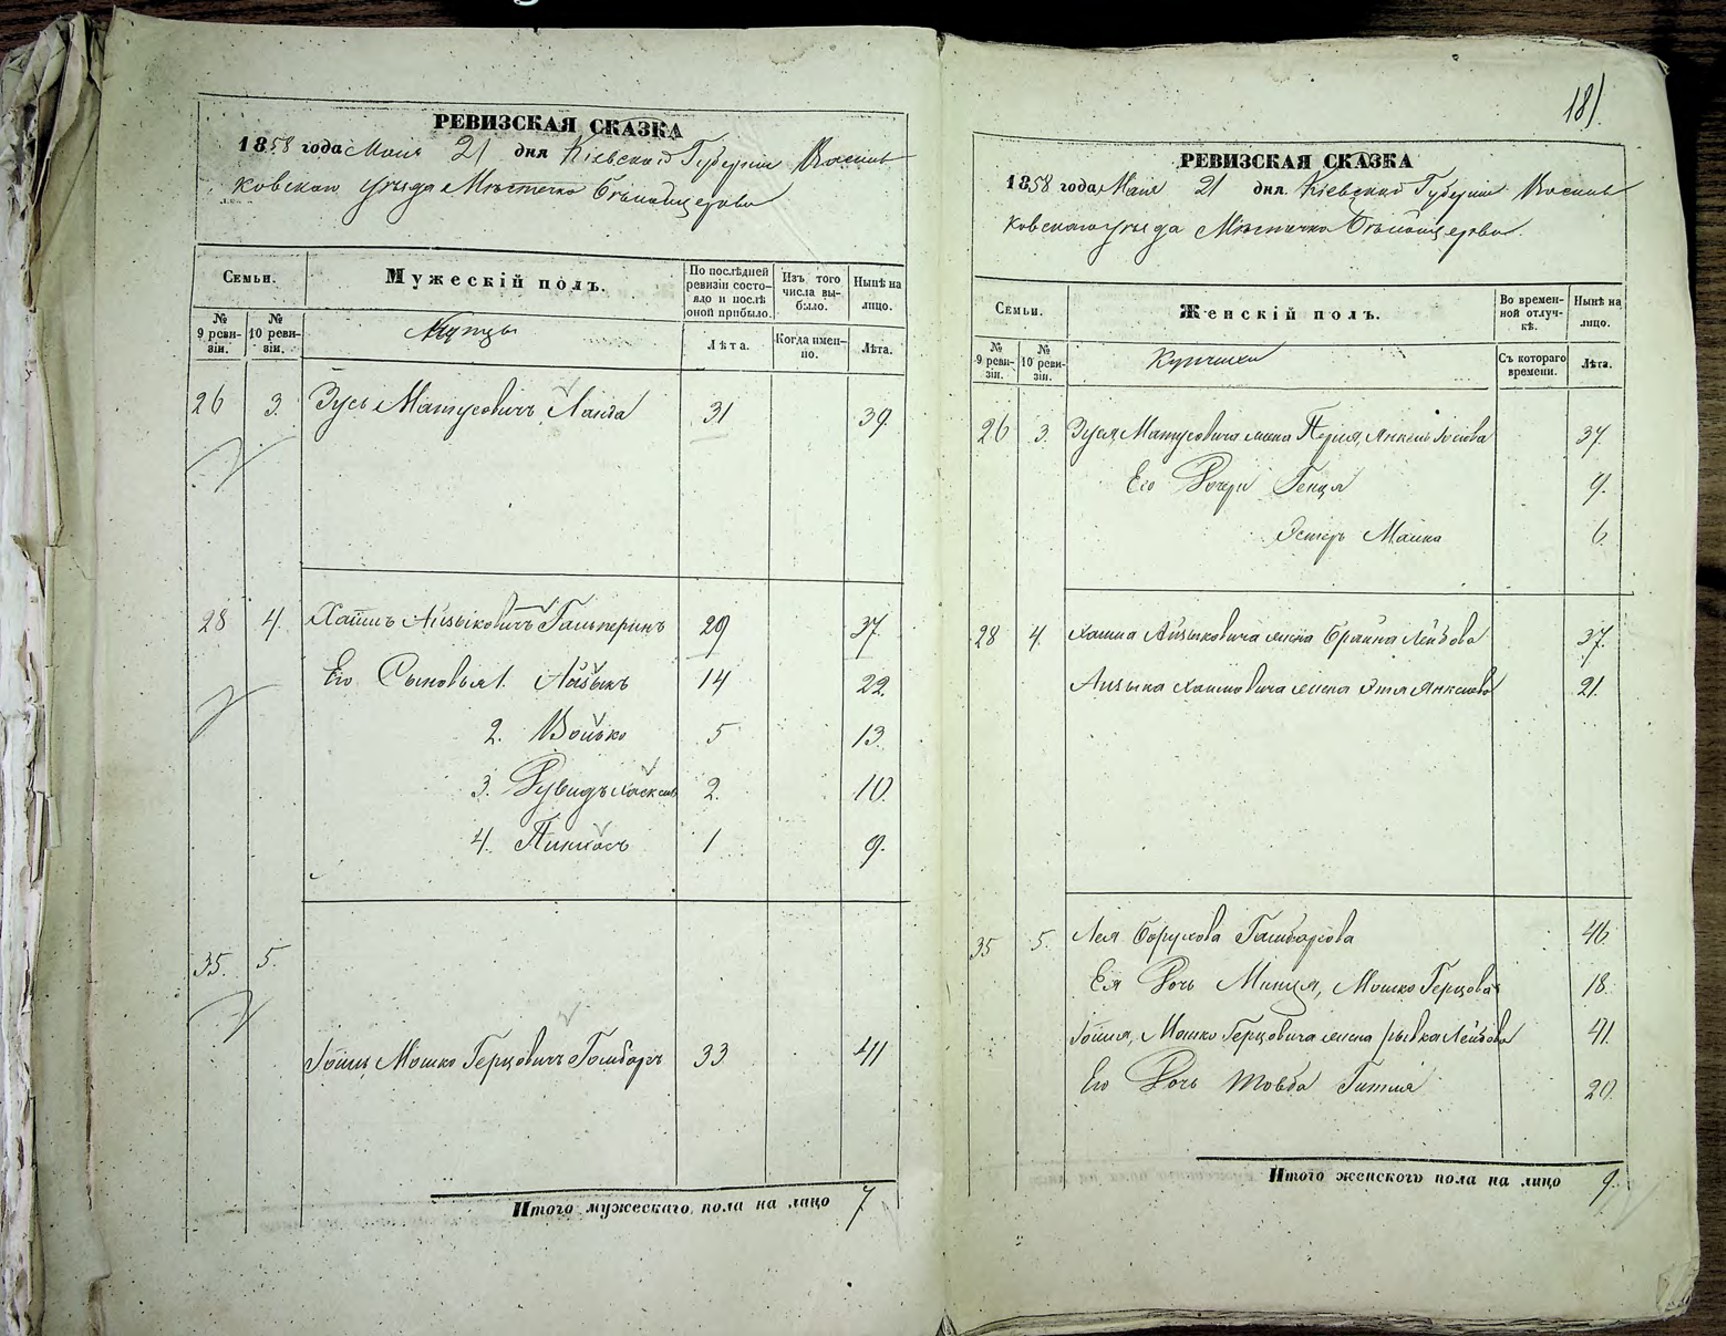 181.
РЕВИЗСКАЯ СКАЗКА
1858 года Мая 21 дня Кіевской Губерніи Василь
ковскаго уѣзда Мѣстечка Бѣлойцеркви
Семьи.
Мужескій полъ.
По послѣдней ревизіи состояло и послѣ оной прибыло.
Изъ того числа выбыло.
Нынѣ на лицо.
№ 9 ревизіи.
№ 10 ревизіи.
Купцы
Лѣта.
Когда именно.
Лѣта.
26 3. Зусь Матусовичъ Ланда 31 39.
28 4. Хаимъ Айзыковичъ Гальперинъ 29 37.
Его Сыновья 1. Айзыкъ 14 22.
2. Волько 5 13.
3. Рувидъ 2. 10.
4. Пинхасъ 1 9.
35. 5.
Мошко Герцовичъ 33. 41
Итого мужескаго пола на лицо 7
РЕВИЗСКАЯ СКАЗКА
1858 года Мая 21 дня Кіевской Губерніи Василь
ковскаго уѣзда Мѣстечка Бѣлойцеркви.
Семьи.
Женскій полъ.
Во временной отлучкѣ.
Нынѣ на лицо.
№ 9 ревизіи.
№ 10 ревизіи.
Купчихи
Съ котораго времени.
Лѣта.
26 3. Зуся Матусовича жена Перля, 37.
Его Дочери Генця 9.
Эстеръ Малка 6.
28 4. Хаима Айзыковича жена Брайна Лейбова 37.
Айзыка Хаимовича жена Этя Янкелева 21.
35 5. Лея Борухова 46.
Ея Дочь Минця, Мошко Герцова 18.
Мошко Герцовича жена Рывка Лейбова 41.
Его Дочь Товба Гитля 20.
Итого женского пола на лицо 9.